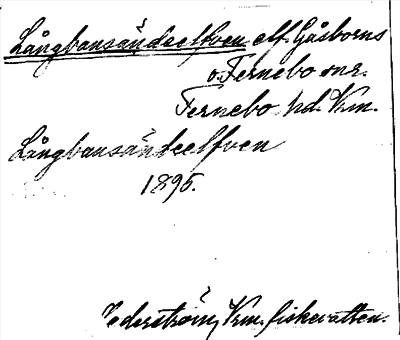 Långbansändeelfven elf. Gåsborns
o. Fernebo snr.
Fernebo hd. Vrm.
Långbansändeelfven
1895.
Cederström, Vrm. fiskevatten.